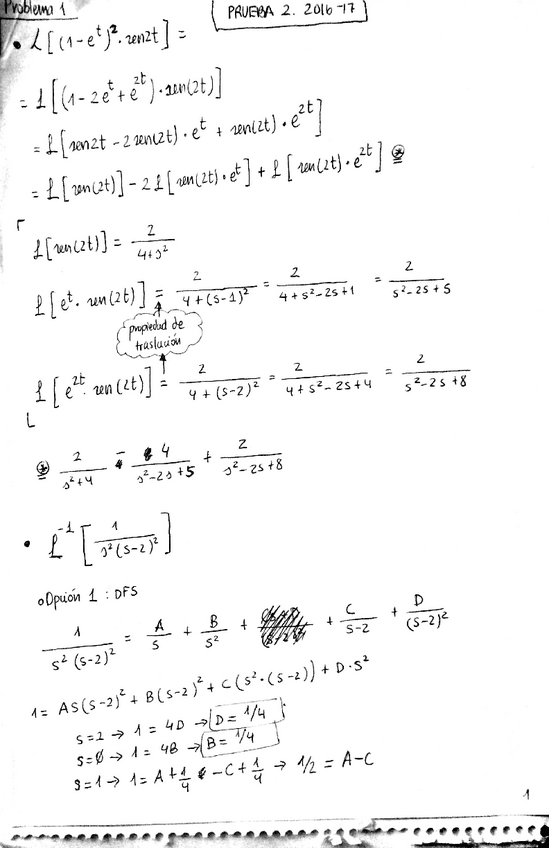 Problema 1
PRUEBA 2. 2016-17
• ℒ[(1-e^t)^2·sen2t] =
= ℒ[(1-2e^t+e^2t)·sen(2t)]
= ℒ[sen2t-2sen(2t)·e^t + sen(2t)·e^2t]
= ℒ[sen(2t)] - 2ℒ[sen(2t)·e^t] + ℒ[sen(2t)·e^2t] ⊛
ℒ[sen(2t)] = 2/(4+s^2)
ℒ[e^t·sen(2t)] = 2/(4+(s-1)^2) = 2/(4+s^2-2s+1) = 2/(s^2-2s+5)
propiedad de
traslación
ℒ[e^2t·sen(2t)] = 2/(4+(s-2)^2) = 2/(4+s^2-2s+4) = 2/(s^2-2s+8)
⊛ 2/(s^2+4) - 4/(s^2-2s+5) + 2/(s^2-2s+8)
• ℒ^-1[1/(s^2(s-2)^2)]
o Opción 1: DFS
1/(s^2(s-2)^2) = A/s + B/s^2 + + C/(s-2) + D/(s-2)^2
1 = AS(s-2)^2 + B(s-2)^2 + C(s^2·(s-2)) + D·s^2
s=2 → 1 = 4D → D = 1/4
s=0 → 1 = 4B → B = 1/4
s=1 → 1 = A + 1/4 - C + 1/4 → 1/2 = A-C
1